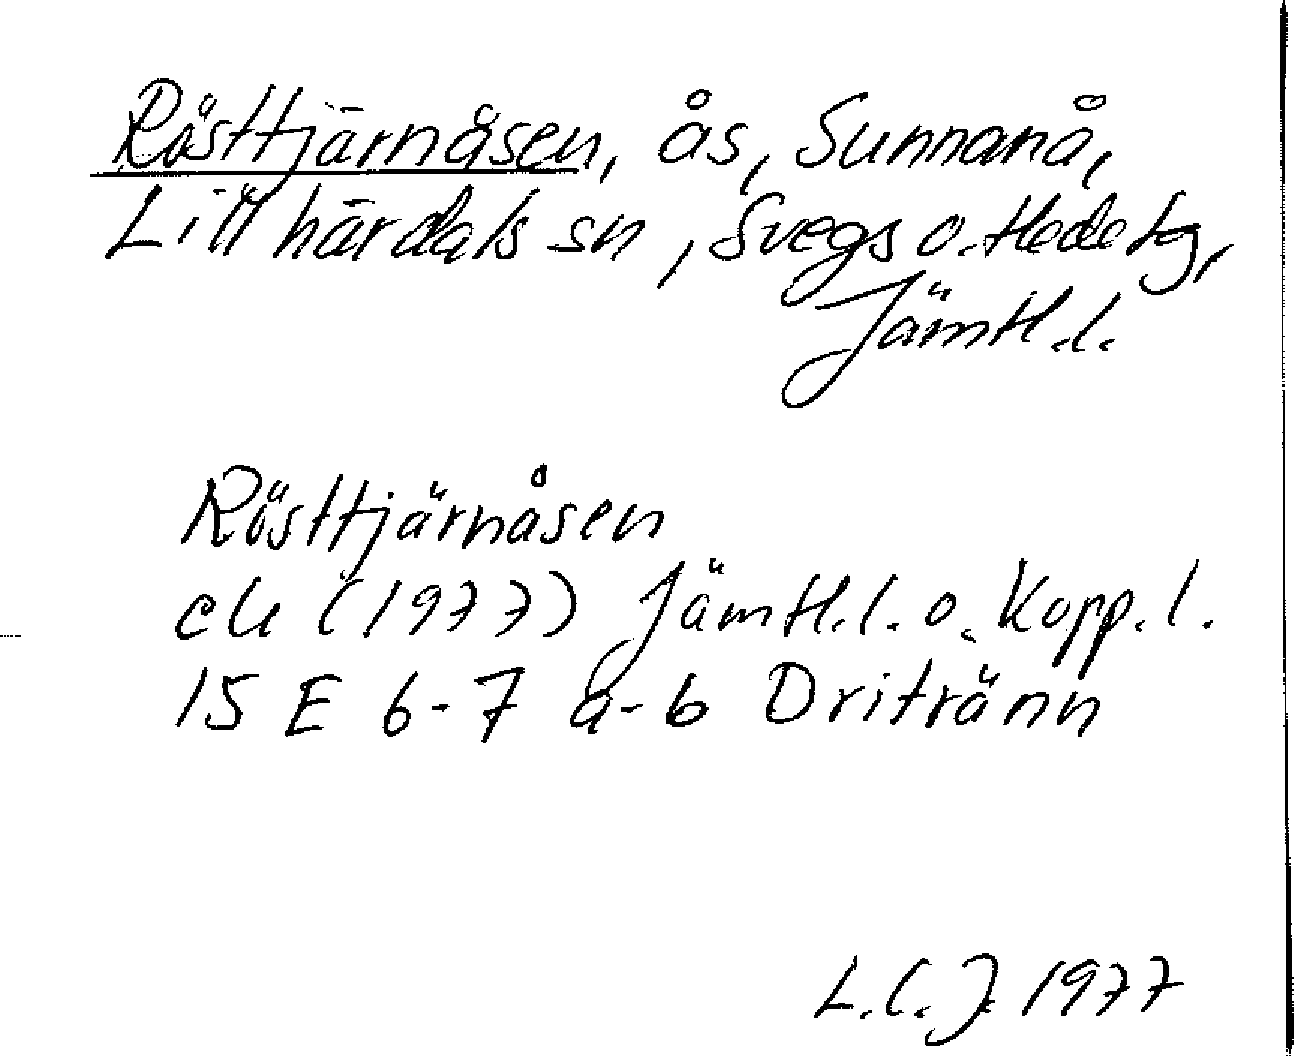 Rösttjärnåsen, ås, Sunnanå,
Lillhärdals sn, Svegs o. Hede tg,
Jämtl. l.
Rösttjärnåsen
ek (1977) Jämtl. l. o. Kopp. l.
15 E 6-7 a-b Dritränn
L. C. J. 1977